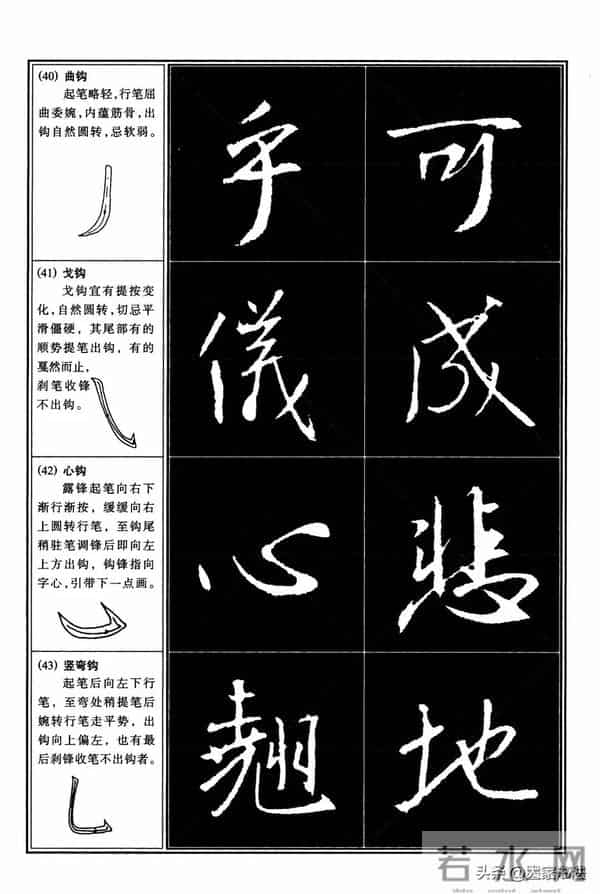 (40) 曲钩
起笔略轻，行笔屈
曲委婉，内蕴筋骨，出
钩自然圆转，忌软弱。
乎 可
(41) 戈钩
戈钩宜有提按变
化，自然圆转，切忌平
滑僵硬，其尾部有的
顺势提笔出钩，有的
戛然而止，
刹笔收锋
不出钩。
儀 成
(42) 心钩
露锋起笔向右下
渐行渐按，缓缓向右
上圆转行笔，至钩尾
稍驻笔调锋后即向左
上方出钩，钩锋指向
字心，引带下一点画。
心 悲
(43) 竖弯钩
起笔后向左下行
笔，至弯处稍提笔后
婉转行笔走平势，出
钩向上偏左，也有最
后刹锋收笔不出钩者。
翹 地
若水网
头条